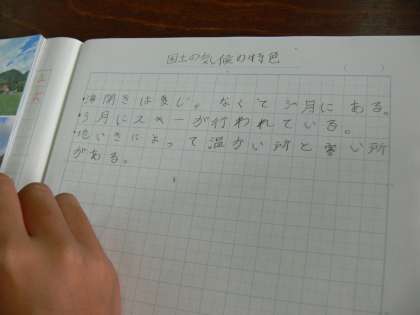 国土の気候の特色
・海開きは夏じゃなくて3月にある。
・5月にスキーが行われている。
・地いきによって温かい所と寒い所
がある。